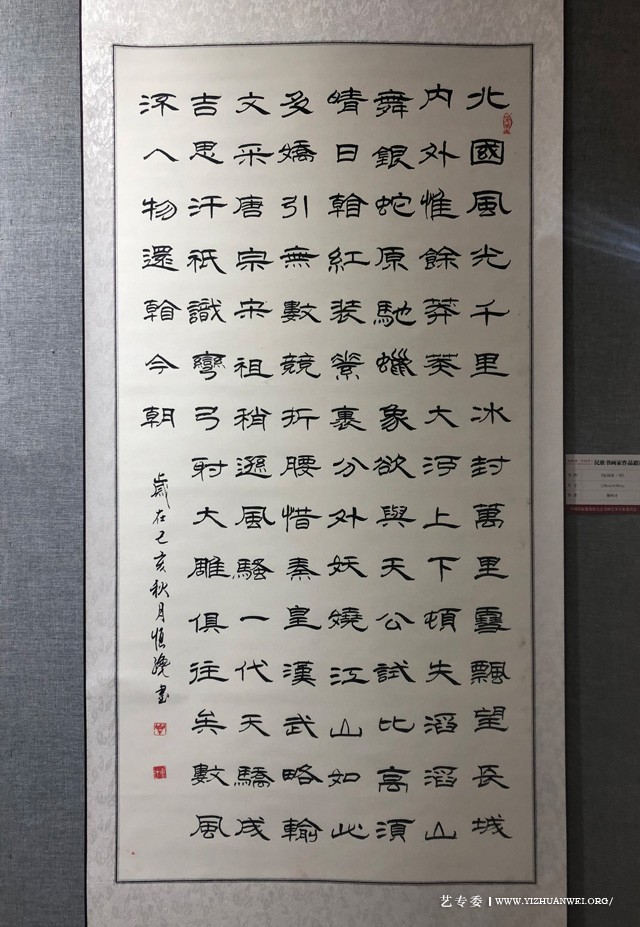 北國風光千里冰封萬里雪飄望長城
内外惟餘莽莽大河上下頓失滔滔山
舞銀蛇原馳蠟象欲與天公試比高須
晴日看紅装素裹分外妖嬈江山如此
多嬌引無數競折腰惜秦皇漢武略輸
文采唐宗宋祖稍遜風騷一代天驕成
吉思汗祇識彎弓射大雕俱往矣數風
流人物還看今朝
歲在己亥秋月慎書
民族书画家作品邀
艺专委 | WWW.YIZHUANWEI.ORG/